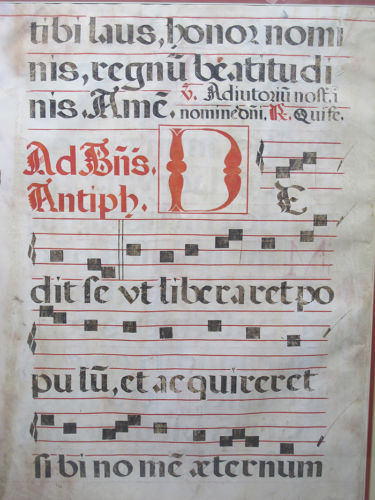 tibi laus, honor nomi
nis, regnū beatitudi
nis. Amē. ℣. Adiutoriū nost. i
nomine dñi. ℟. Qui fe.
Ad Bñs. D E
Antiph.
dit se vt liberaret po
pulū, et acquireret
sibi nomē æternum